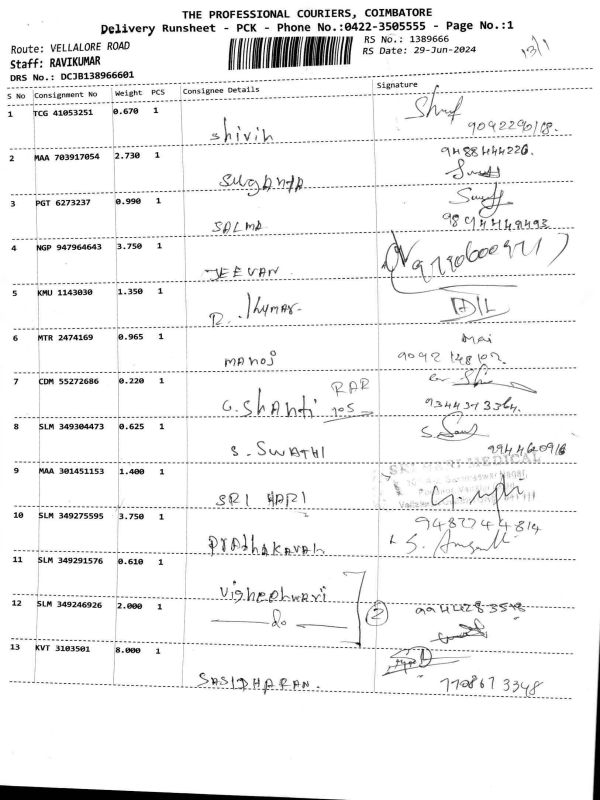 THE PROFESSIONAL COURIERS, COIMBATORE
Delivery Runsheet - PCK - Phone No.:0422-3505555 - Page No.:1
Route: VELLALORE ROAD
RS No.: 1389666
Staff: RAVIKUMAR
RS Date: 29-Jun-2024
13/1
DRS No.: DCJB138966601
S No Consignment No Weight PCS Consignee Details Signature
1 TCG 41053251 0.670 1
Shivin
2 MAA 703917054 2.730 1
9488444226.
Suganya
3 PGT 6273237 0.990 1
SALMA
4 NGP 947964643 3.750 1
JEEVAN
5 KMU 1143030 1.350 1
R. Kumar
6 MTR 2474169 0.965 1
Manoj
7 CDM 55272686 0.220 1
RAR
G. Shanti 705
9344373364.
8 SLM 349304473 0.625 1
S. SWATHI
9944620916
9 MAA 301451153 1.400 1
SRI HARI MEDICAL
SRI HARI
10 SLM 349275595 3.750 1
9487744814
Prabhakaran
11 SLM 349291576 0.610 1
Vigneshwari
12 SLM 349246926 2.000 1
do
2
13 KVT 3103501 8.000 1
SASIDHARAN.
770867 3348